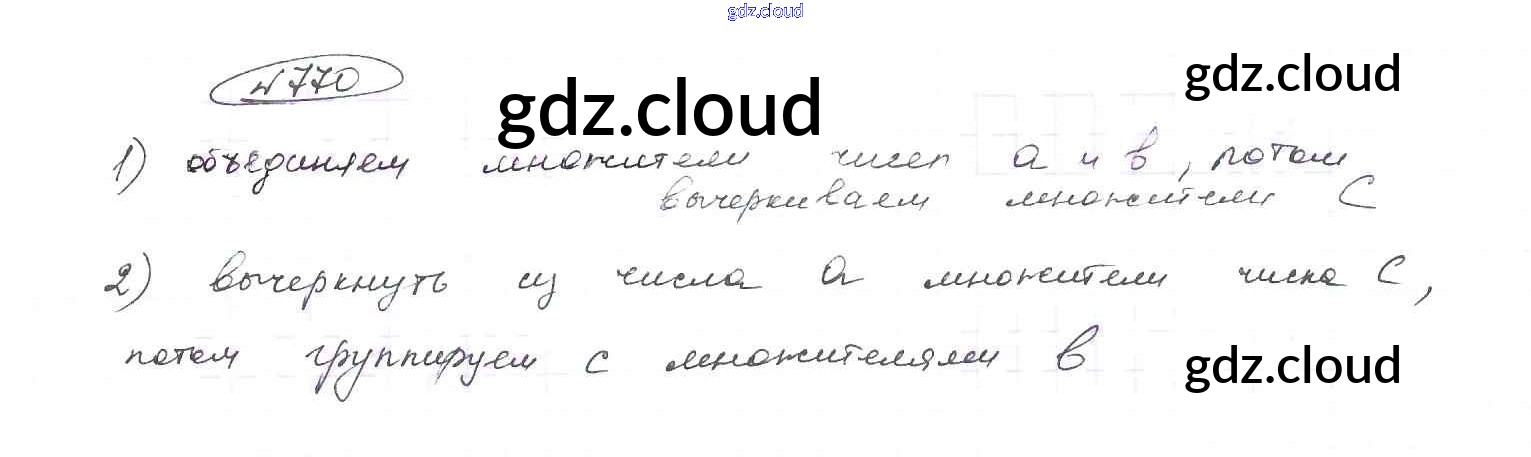 gdz.cloud
№770
gdz.cloud
gdz.cloud
1) объединяем множители чисел a и b, потом
вычеркиваем множители C
2) вычеркнуть из числа a множители числа C,
потом группируем с множителями b
gdz.cloud